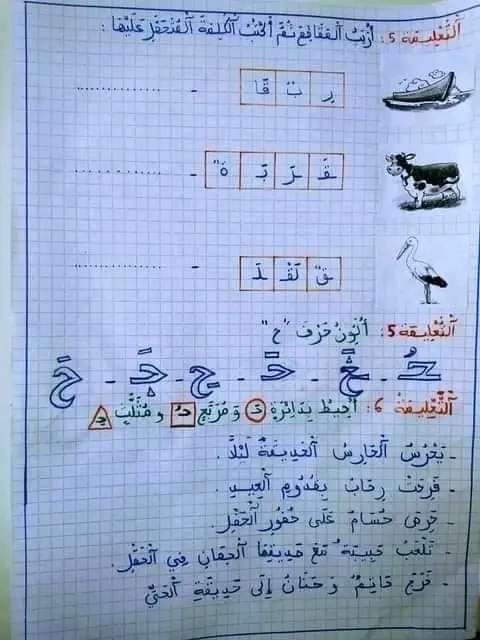 التَّعْلِيمَة 5: أُرَتِّبُ الْمَقَاطِعَ ثُمَّ أَكْتُبُ الْكَلِمَةَ الْمُتَحَصَّلَ عَلَيْهَا:
رِ بْ قَا - ..............
قَـ ـرَ بَـ ةٌ - ..............
قٌ لَقْـ لَـ - ..............
التَّعْلِيمَة 5: أُلَوِّنُ حَرْفَ "ح"
حُـ - خَّ - حَـ - حِ - جَـ - حَ
التَّعْلِيمَةُ 6: أُحِيطُ بِدَائِرَةٍ حَـ وَمُرَبَّعٍ حُـ وَمُثَلَّثٍ حِـ
- يَحْرُسُ الْحَارِسُ الْحَدِيقَةَ لَيْلًا.
- فَرِحَتْ رِحَابُ بِقُدُومِ الْعِيدِ.
- حَرِصَ حُسَامٌ عَلَى حُضُورِ الْحَفْلِ.
- تَلْعَبُ حَبِيبَةُ مَعَ صَدِيقِهَا فِي الْحَقْلِ.
- خَرَجَ حَاتِمُ وَحَنَانُ إِلَى حَدِيقَةِ الْحَيِّ